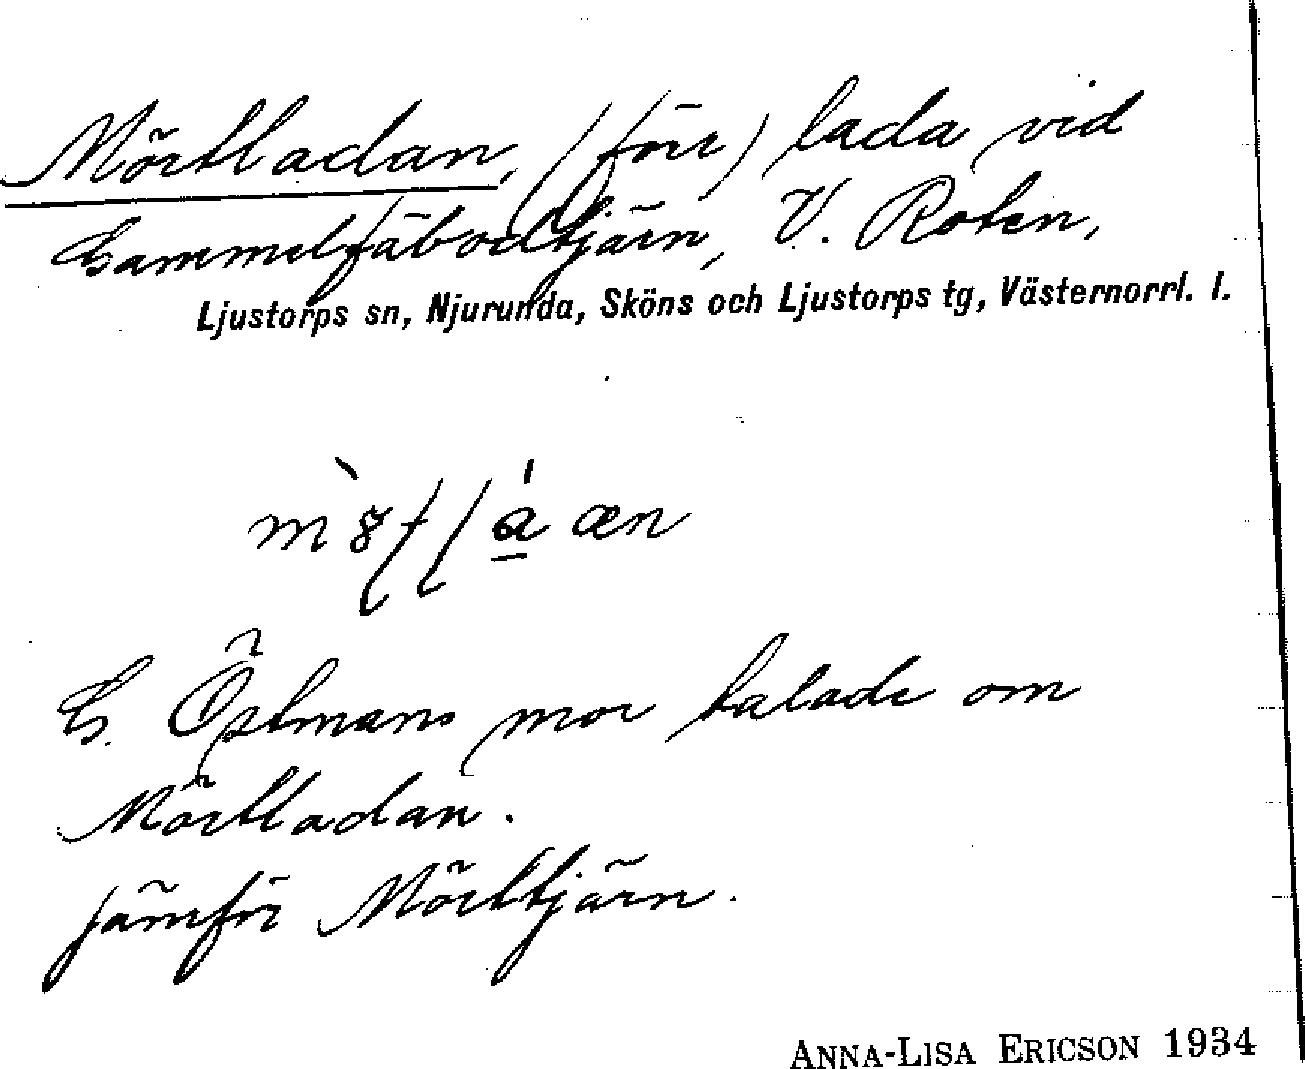 Mörtladan, (förr) lada vid
Gammelfäbodtjärn, V. Roten,
Ljustorps sn, Njurunda, Sköns och Ljustorps tg, Västernorrl. l.
G. Östmans mor talade om
Mörtladan.
jämför Mörttjärn.
ANNA-LISA ERICSON 1934